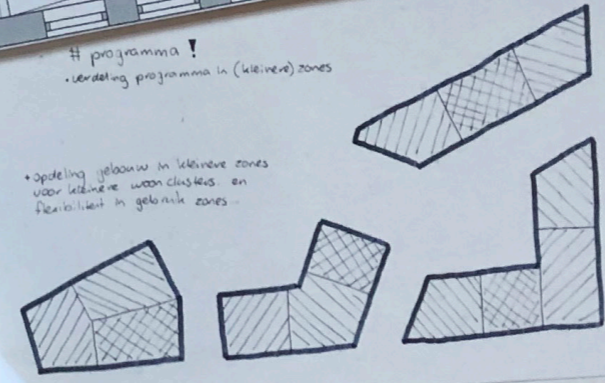 # programma !
• verdeling programma in (kleinere) zones
• opdeling gebouw in kleinere zones
voor kleinere woonclusters en
flexibiliteit in gebruik zones.